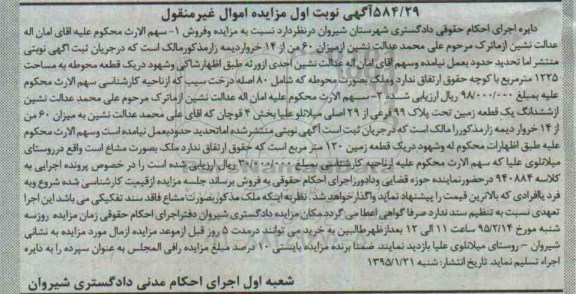 ۵۸۴/۲۹آگهی نوبت اول مزایده اموال غیرمنقول
دایره اجرای احکام حقوقی دادگستری شهرستان شیروان درنظردارد نسبت به مزایده وفروش ۱- سهم الارث محکوم علیه اقای امان اله
عدالت نشین ازماترک مرحوم علی محمد عدالت نشین ازمیزان ۶۰ من از ۱۴ خرواردیمه زارمذکورمالک است که درجریان ثبت اگهی نوبتی
منتشر اما تحدید حدود بعمل نیامده وسهم اقای امان اله عدالت نشین احدی ازورثه طبق اظهارشاکی وشهود دریک قطعه محوطه به مساحت
۱۲۲۵ مترمربع با کوچه حقوق ارتفاق ندارد وملک بصورت محوطه که شامل ۸۰ اصله درخت سیب که ازناحیه کارشناسی سهم الارث محکوم
علیه بمبلغ ۹۸/۰۰۰/۰۰۰ ریال ارزیابی شده ۲- سهم الارث محکوم علیه امان اله عدالت نشین از ماترک مرحوم علی محمد عدالت نشین
ازششدانگ یک قطعه زمین تحت پلاک ۹۹ فرعی از ۲۹ اصلی میلانلو علیا بخش ۴ قوچان که اقای علی محمد عدالت نشین به میزان ۶۰ من
از ۱۴ خروار دیمه زارمذکوررا مالک است که درجریان ثبت است آگهی نوبتی منتشرشده اماتحدید حدودبعمل نیامده است وسهم الارث محکوم
علیه طبق اظهارات محکوم له وشهود دریک قطعه زمین ۱۲۰ متر مربع است که حقوق ارتفاق ندارد ملک بصورت مشاع است واقع درروستای
میلانلوی علیا که سهم الارث محکوم علیه ازناحیه کارشناسی بمبلغ ۳۰/۰۰۰/۰۰۰ ریال ارزیابی شده است را در خصوص پرونده اجرایی به
کلاسه ۹۴۰۸۸۴ درحضورنماینده حوزه قضایی ودادورزاجرای احکام حقوقی به فروش برساند جلسه مزایده ازقیمت کارشناسی شده شروع وبه
فرد یاافرادی که بالاترین قیمت را پیشنهاد نماید واگذارخواهدشد. نظربه اینکه ملک مذکوربصورت مشاع فاقد سند تفکیکی می باشد این اجرا
تعهدی نسبت به تنظیم سند ندارد صرفا گواهی اعطا می گردد مکان مزایده دادگستری شیروان دفتراجرای احکام حقوقی زمان مزایده روزسه
شنبه مورخ ۹۵/۲/۱۴ ساعت ۱۱ الی ۱۲ بعدازظهرطالبین به خرید می توانند درمدت ۵ روز قبل ازموعد مزایده ازمال مورد مزایده به نشانی
شیروان - روستای میلانلوی علیا بازدید نمایند. ضمنا برنده مزایده بایستی ۱۰ درصد مبلغ مزایده رافی المجلس به عنوان سپرده را به دایره
اجراء تسلیم نماید. تاریخ انتشار: شنبه ۱۳۹۵/۱/۲۱
شعبه اول اجرای احکام مدنی دادگستری شیروان